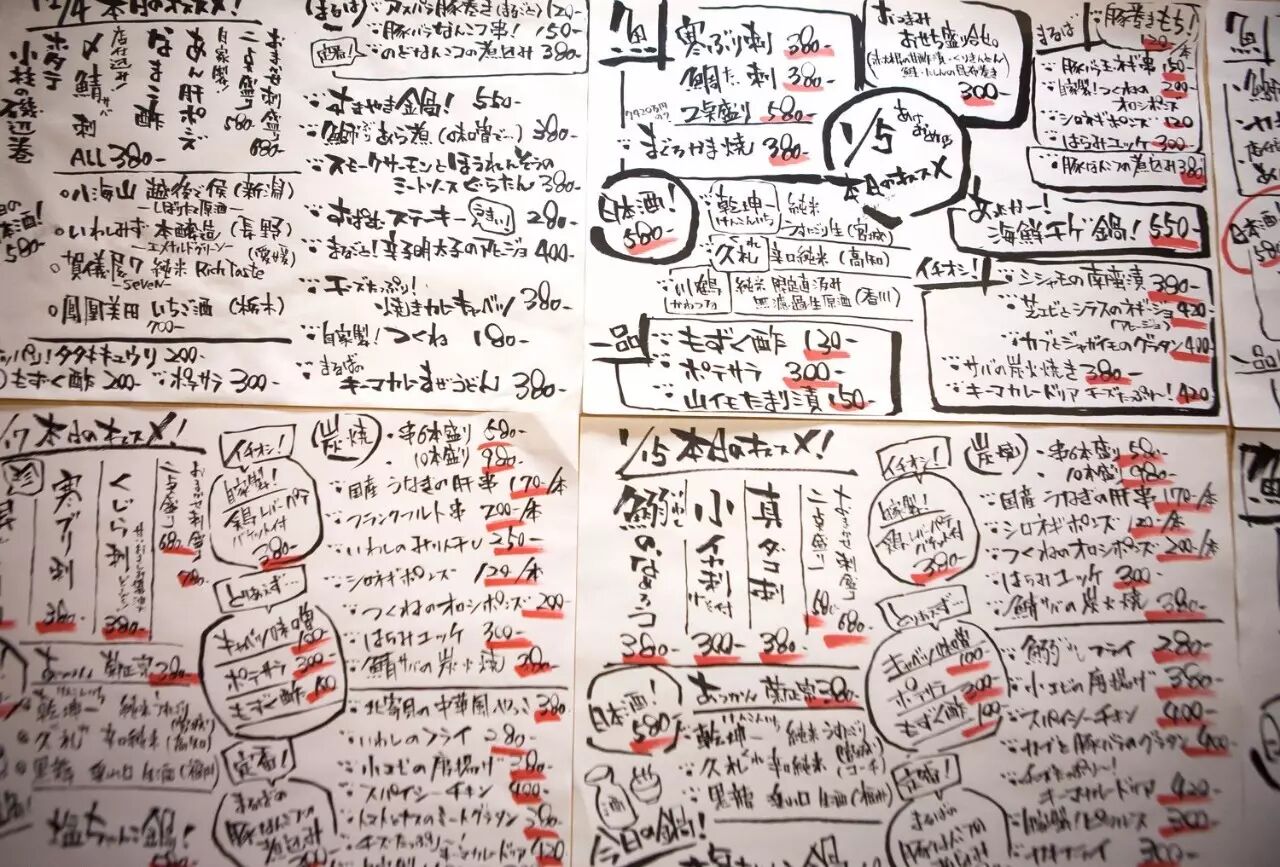 12/4 本日のオススメ!
おまかせ刺盛り 680-
二点盛り 580-
自家製 あん肝ポン酢
なまこ酢
〆鯖刺
ホタテ
小柱の磯辺巻
ALL 380-
小海山 越後で候 (新潟)
しぼりたて原酒
いわしみず 本醸造 (長野)
エメラルドグリーン
賀儀屋7 純米 Rich Taste (愛媛)
-SEVEN-
鳳凰美田 いちご酒 (栃木)
700-
タタキキュウリ 200-
もずく酢 200- ポテサラ 300-
まるば
アスパラ豚巻き(まるごと) 120-
豚バラなんこつ串! 150-
定番!
のどなんこつの煮込み 380-
鍋! 550-
鰤ぶりあら煮 380-
スモークサーモンとほうれんそうの
ミートソースぐらたん 380-
ステーキ うまい! 280-
まるごと!辛子明太子のアヒージョ 400-
チーズたっぷり!
焼きカレーキャベツ 380-
自家製!つくね 180-
まるば
キーマカレーまぜうどん 380-
魚
寒ぶり刺 380-
鯛たい刺 380-
2点盛り 580-
まぐろかま焼 380-
おつまみ
おせち盛り合せ。
300-
あけ
おめ
1/5
本日のオススメ
まるば
豚巻きもち!
120/本
豚バラ玉ネギ串 150-
自家製!つくねの
オロシポンズ 200-
シロネギポンズ 120
はらみユッケ 300-
豚なんこつの煮込み 380-
海鮮チゲ鍋! 550-
日本酒!
580-
乾坤一 純米
けんこんいち
うすにごり生 (宮城)
久礼 辛口純米 (高知)
川鶴 純米 限定直汲み
かわつる
無濾過生原酒 (香川)
一品
もずく酢 130-
ポテサラ 300-
山イモたまり漬 150-
イチオシ!
シシャモの南蛮漬 380-
芝エビとシラスのネギージョ 420-
(アヒージョ)
カブとジャガイモのグラタン 400
サバの炭火焼き 380-
キーマカレードリア チーズたっぷり〜! 420
本日のオススメ!
おまかせ刺盛り
二点盛り 680-
くじら刺 380-
寒ブリ刺 380-
あつかん 菊正宗 380-
乾坤一 純米
けんこんいち
久礼 辛口純米 (高知)
塩ちゃんこ鍋!
イチオシ!
自家製!
鶏レバーパテ
バゲット付
380-
とりあえず…
キャベツ味噌 100
ポテサラ 300-
もずく酢 100
定番!
まるばの
豚なんこつの
煮込み
炭焼
串6本盛り 580-
10本盛り 980-
国産 うなぎの肝串 170/本
フランクフルト串 200/本
いわしのみりん干し 250-
シロネギポンズ 120/本
つくねのオロシポンズ 200-
はらみユッケ 300-
鯖サバの炭火焼 380-
北寄貝の中華風 380-
いわしのフライ 280-
小エビの唐揚げ 380-
スパイシーチキン 400-
トマトとナスのミートグラタン 380-
チーズたっぷり!
キーマカレードリア 420
1/15 本日のオススメ!
おまかせ刺盛り 680-
二点盛り 680-
真ダコ刺 380-
小イカ刺 300-
鰯のなめろう 380-
日本酒!
580-
あつかん 菊正宗 380-
けんこんいち
乾坤一 純米うすにごり (宮城)
久礼 辛口純米 (コーチ)
酒
今日の鍋!
イチオシ!
自家製!
鶏レバーパテ
バゲット付
380-
とりあえず…
キャベツ味噌 100-
ポテサラ 300-
もずく酢 100
定番!
まるばの
豚なんこつの
煮込み
炭焼
串6本盛り 580-
10本盛り 980-
国産 うなぎの肝串 170/本
シロネギポンズ 120/本
つくねのオロシポンズ 200/本
はらみユッケ 300-
鯖サバの炭火焼 380-
鰯いわしフライ 280-
小エビの唐揚げ 380-
スパイシーチキン 400-
カブと豚バラのグラタン 400-
チーズたっぷり〜!
キーマカレードリア 420
魚
日本酒!
一品